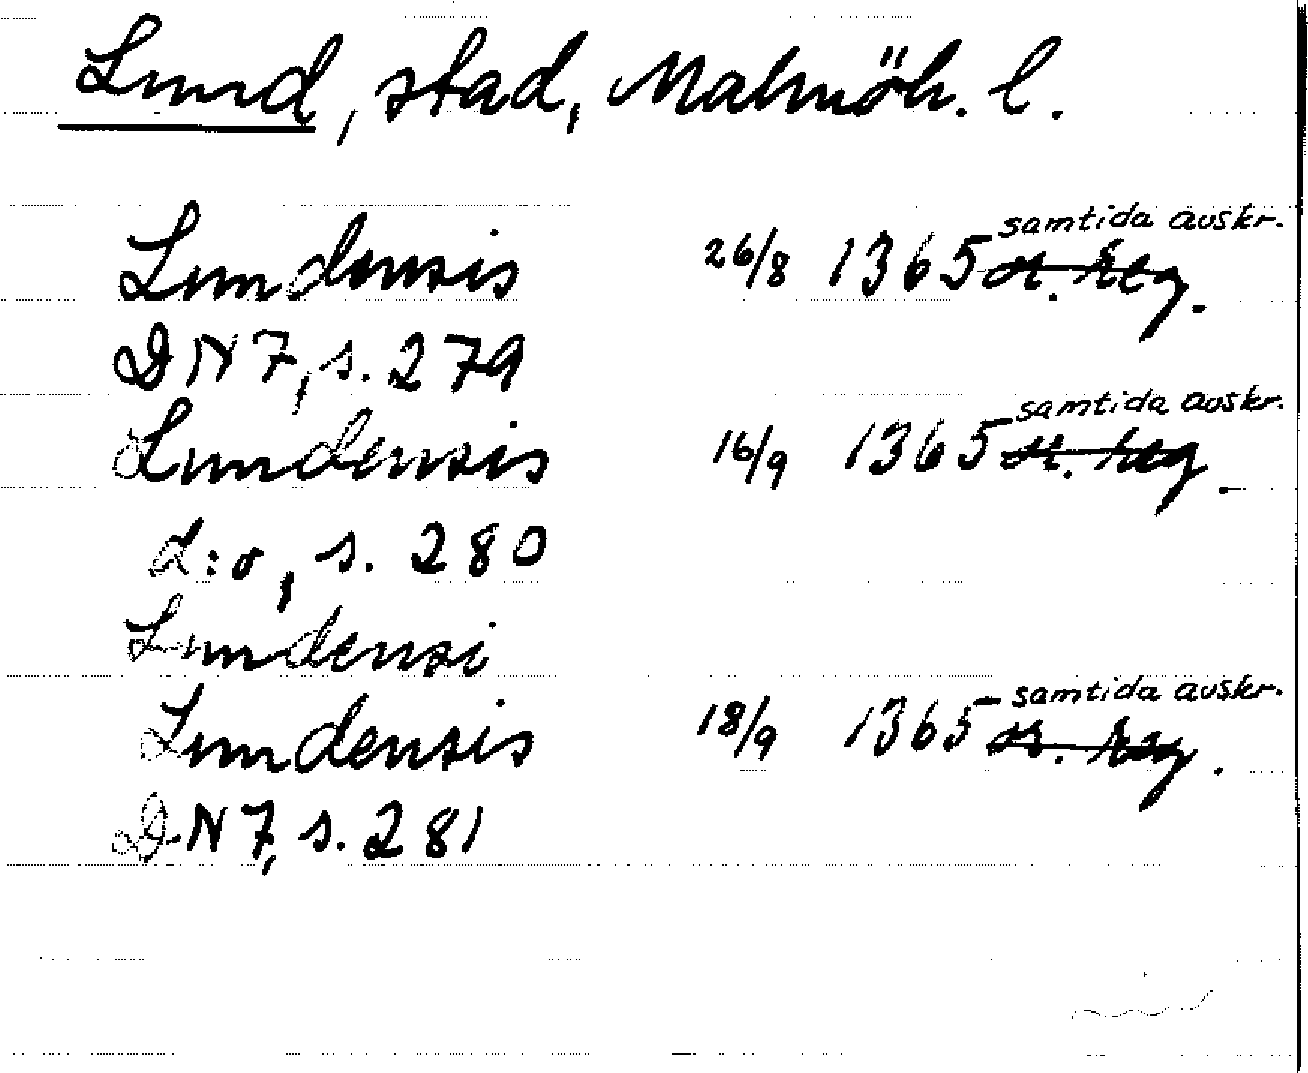 Lund, stad, Malmöh. l.
samtida avskr.
Lundensis 26/8 1365 st. reg.
DN7, s. 279
samtida avskr.
Lundensis 16/9 1365 st. reg.
d:o, s. 280
Lundensi
samtida avskr.
Lundensis 18/9 1365 st. reg.
DN7, s. 281